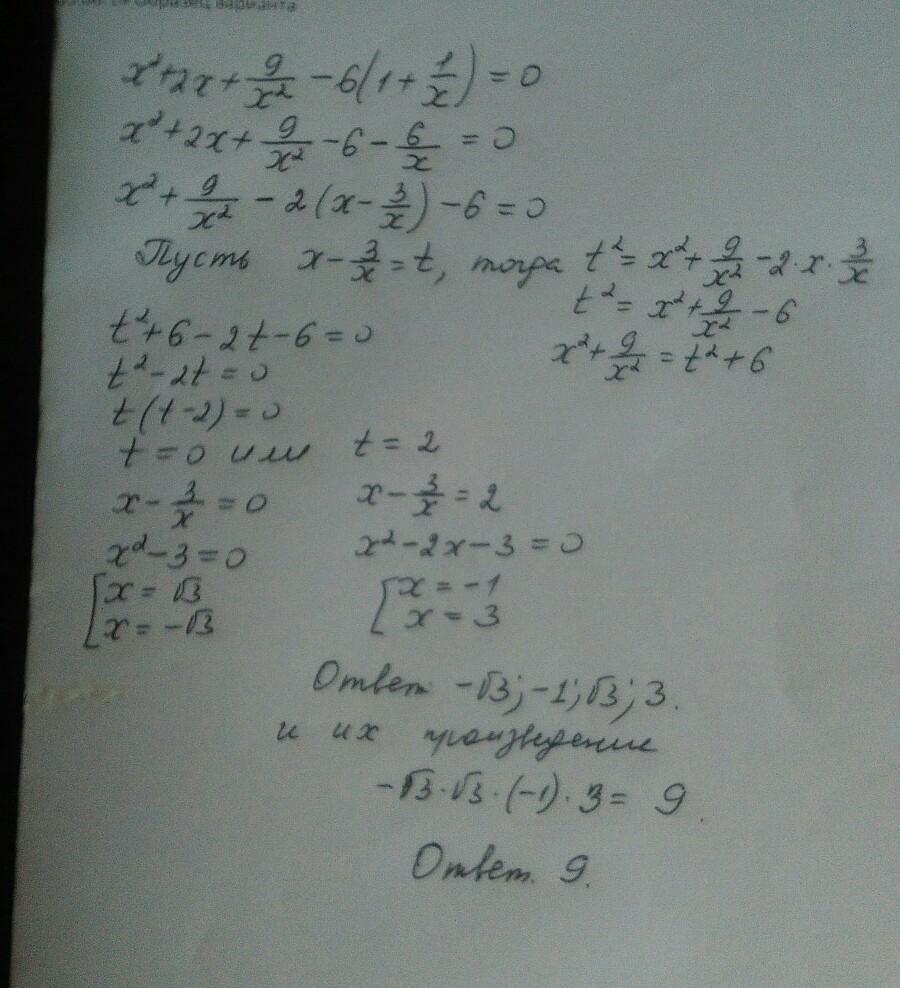 Образец варианта
x²+2x+9/x²-6(1+1/x)=0
x²+2x+9/x²-6-6/x=0
x²+9/x²-2(x-3/x)-6=0
Пусть x-3/x=t, тогда t²=x²+9/x²-2·x·3/x
t²=x²+9/x²-6
t²+6-2t-6=0
x²+9/x²=t²+6
t²-2t=0
t(t-2)=0
t=0 или t=2
x-3/x=0 x-3/x=2
x²-3=0 x²-2x-3=0
[x=√3 [x=-1
x=-√3 x=3
Ответ: -√3; -1; √3; 3.
и их произведение
-√3·√3·(-1)·3=9.
Ответ. 9.